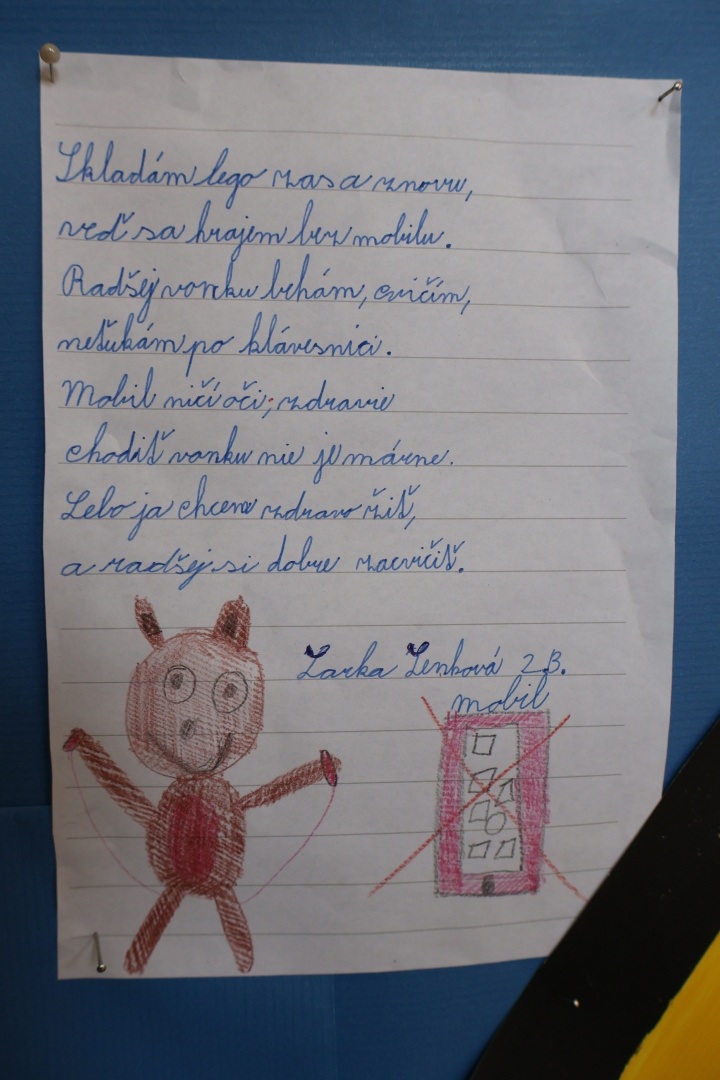 Skladám lego zas a znovu,
veď sa hrajem bez mobilu.
Radšej vonku behám, cvičím,
neťukám po klávesnici.
Mobil ničí oči, zdravie
chodiť vonku nie je márne.
Lebo ja chcem zdravo žiť,
a radšej si dobre zacvičiť.
Larka Lenková 2.B.
mobil